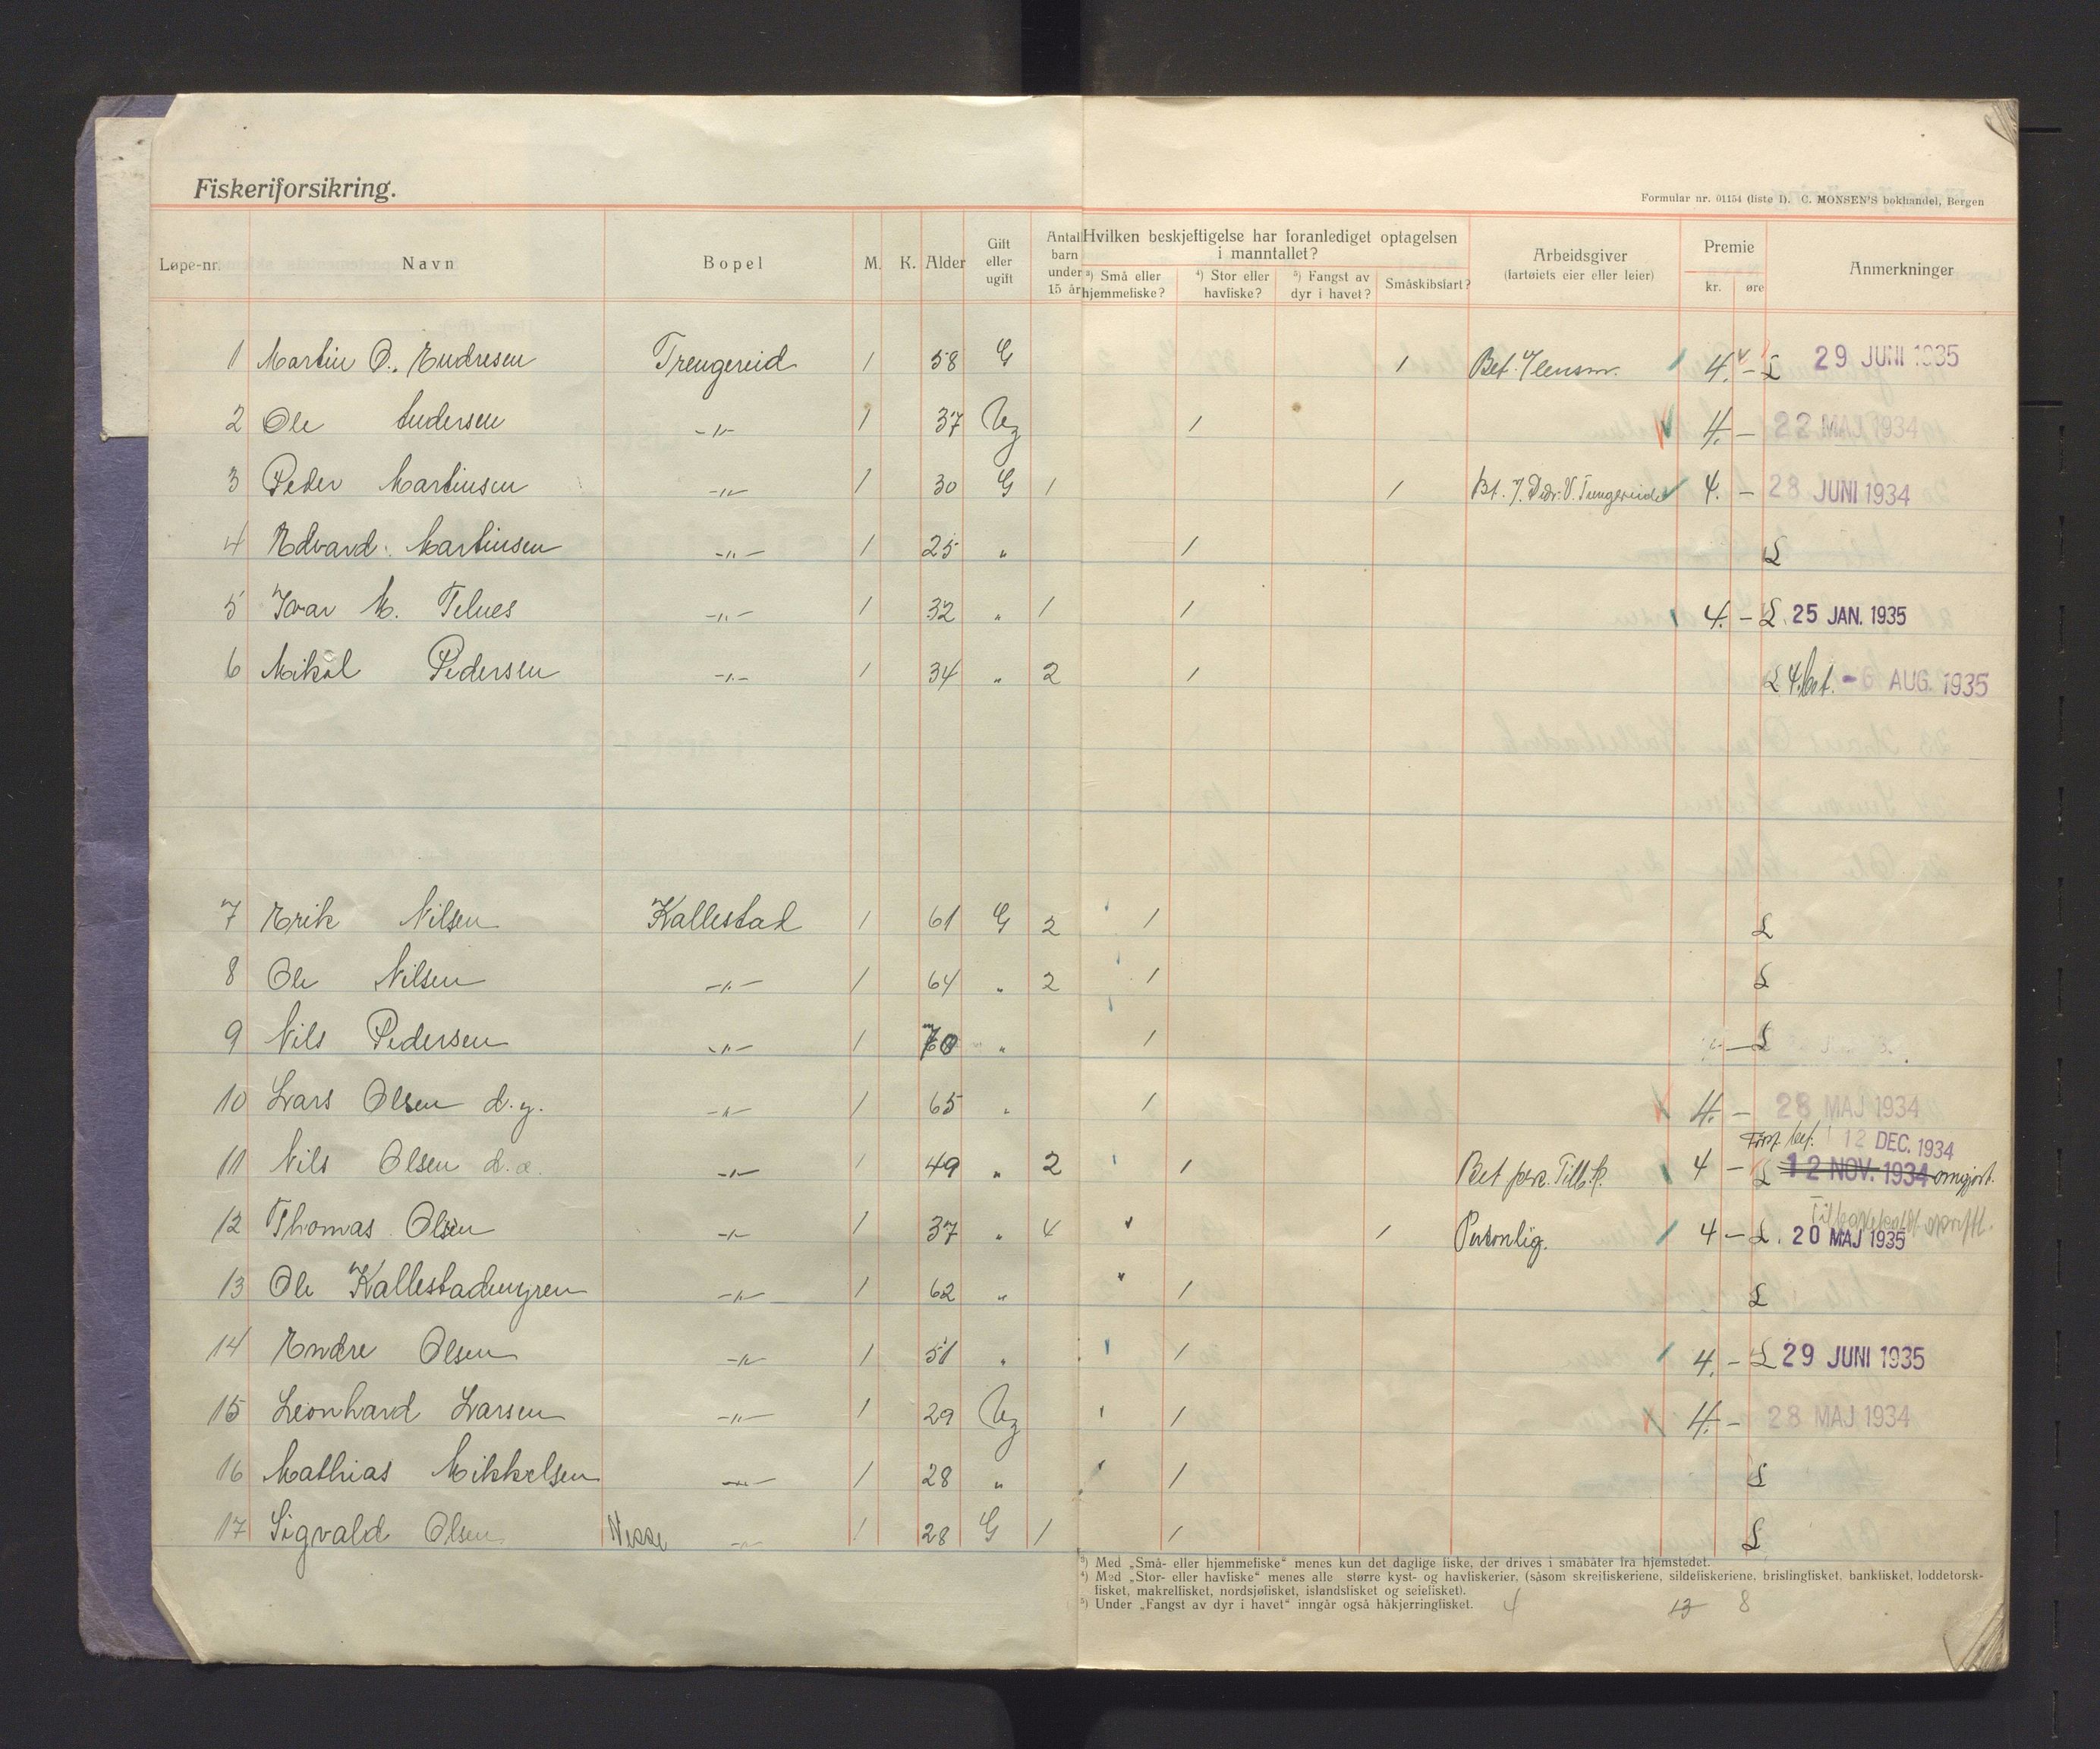 Fiskeriforsikring.
Formular nr. 01154 (liste I). C. MONSEN'S bokhandel, Bergen
Løpe-nr. Navn Bopel M. K. Alder Gift eller ugift Antal barn under 15 år Hvilken beskjeftigelse har foranlediget optagelsen i manntallet? ³) Små eller hjemmefiske? ⁴) Stor eller havfiske? ⁵) Fangst av dyr i havet? Småskibsfart? Arbeidsgiver (fartøiets eier eller leier) Premie kr. øre Anmerkninger
1 Martin O. Endresen Trengereid 1 58 G 1 Bet. 4. - L 29 JUNI 1935
2 Ole Andersen -"- 1 37 Ug 1 4. - 22 MAJ 1934
3 Peder Martinsen -"- 1 30 G 1 1 4. - 28 JUNI 1934
4 Edvard Martinsen -"- 1 25 " 1 L
5 Ivar M. Telnes -"- 1 32 " 1 1 4. - L. 25 JAN. 1935
6 Mikal Pedersen -"- 1 34 " 2 1 L 4. bet. - 6 AUG. 1935
7 Erik Nilsen Kallestad 1 61 G 2 1 L
8 Ole Nilsen -"- 1 64 " 2 1 L
9 Nils Pedersen -"- 1 70 " 1 - L
10 Lars Olsen d.y. -"- 1 65 " 1 4. - 28 MAJ 1934
Først bet. 12 DEC. 1934
11 Nils Olsen d.æ. -"- 1 49 " 2 1 Bet pr. 4 - L 12 NOV. 1934 omgjort.
12 Thomas Olsen -"- 1 37 " 4 1 Personlig. 4 - L. 20 MAJ 1935
13 Ole Kallestadmyren -"- 1 62 " 1 L
14 Endre Olsen -"- 1 51 " 1 4. - L 29 JUNI 1935
15 Leonhard Larsen -"- 1 29 Ug 1 4. - 28 MAJ 1934
16 Mathias Mikkelsen -"- 1 28 " 1 L
17 Sigvald Olsen Nesse -"- 1 28 G 1 1 L
³) Med „Små- eller hjemmefiske" menes kun det daglige fiske, der drives i småbåter fra hjemstedet.
⁴) Med „Stor- eller havfiske" menes alle større kyst- og havfiskerier, (såsom skreifiskeriene, sildefiskeriene, brislingfisket, bankfisket, loddetorsk-
fisket, makrelfisket, nordsjøfisket, islandsfisket og seiefisket).
⁵) Under „Fangst av dyr i havet" inngår også håkjerringfisket. 4 13 8